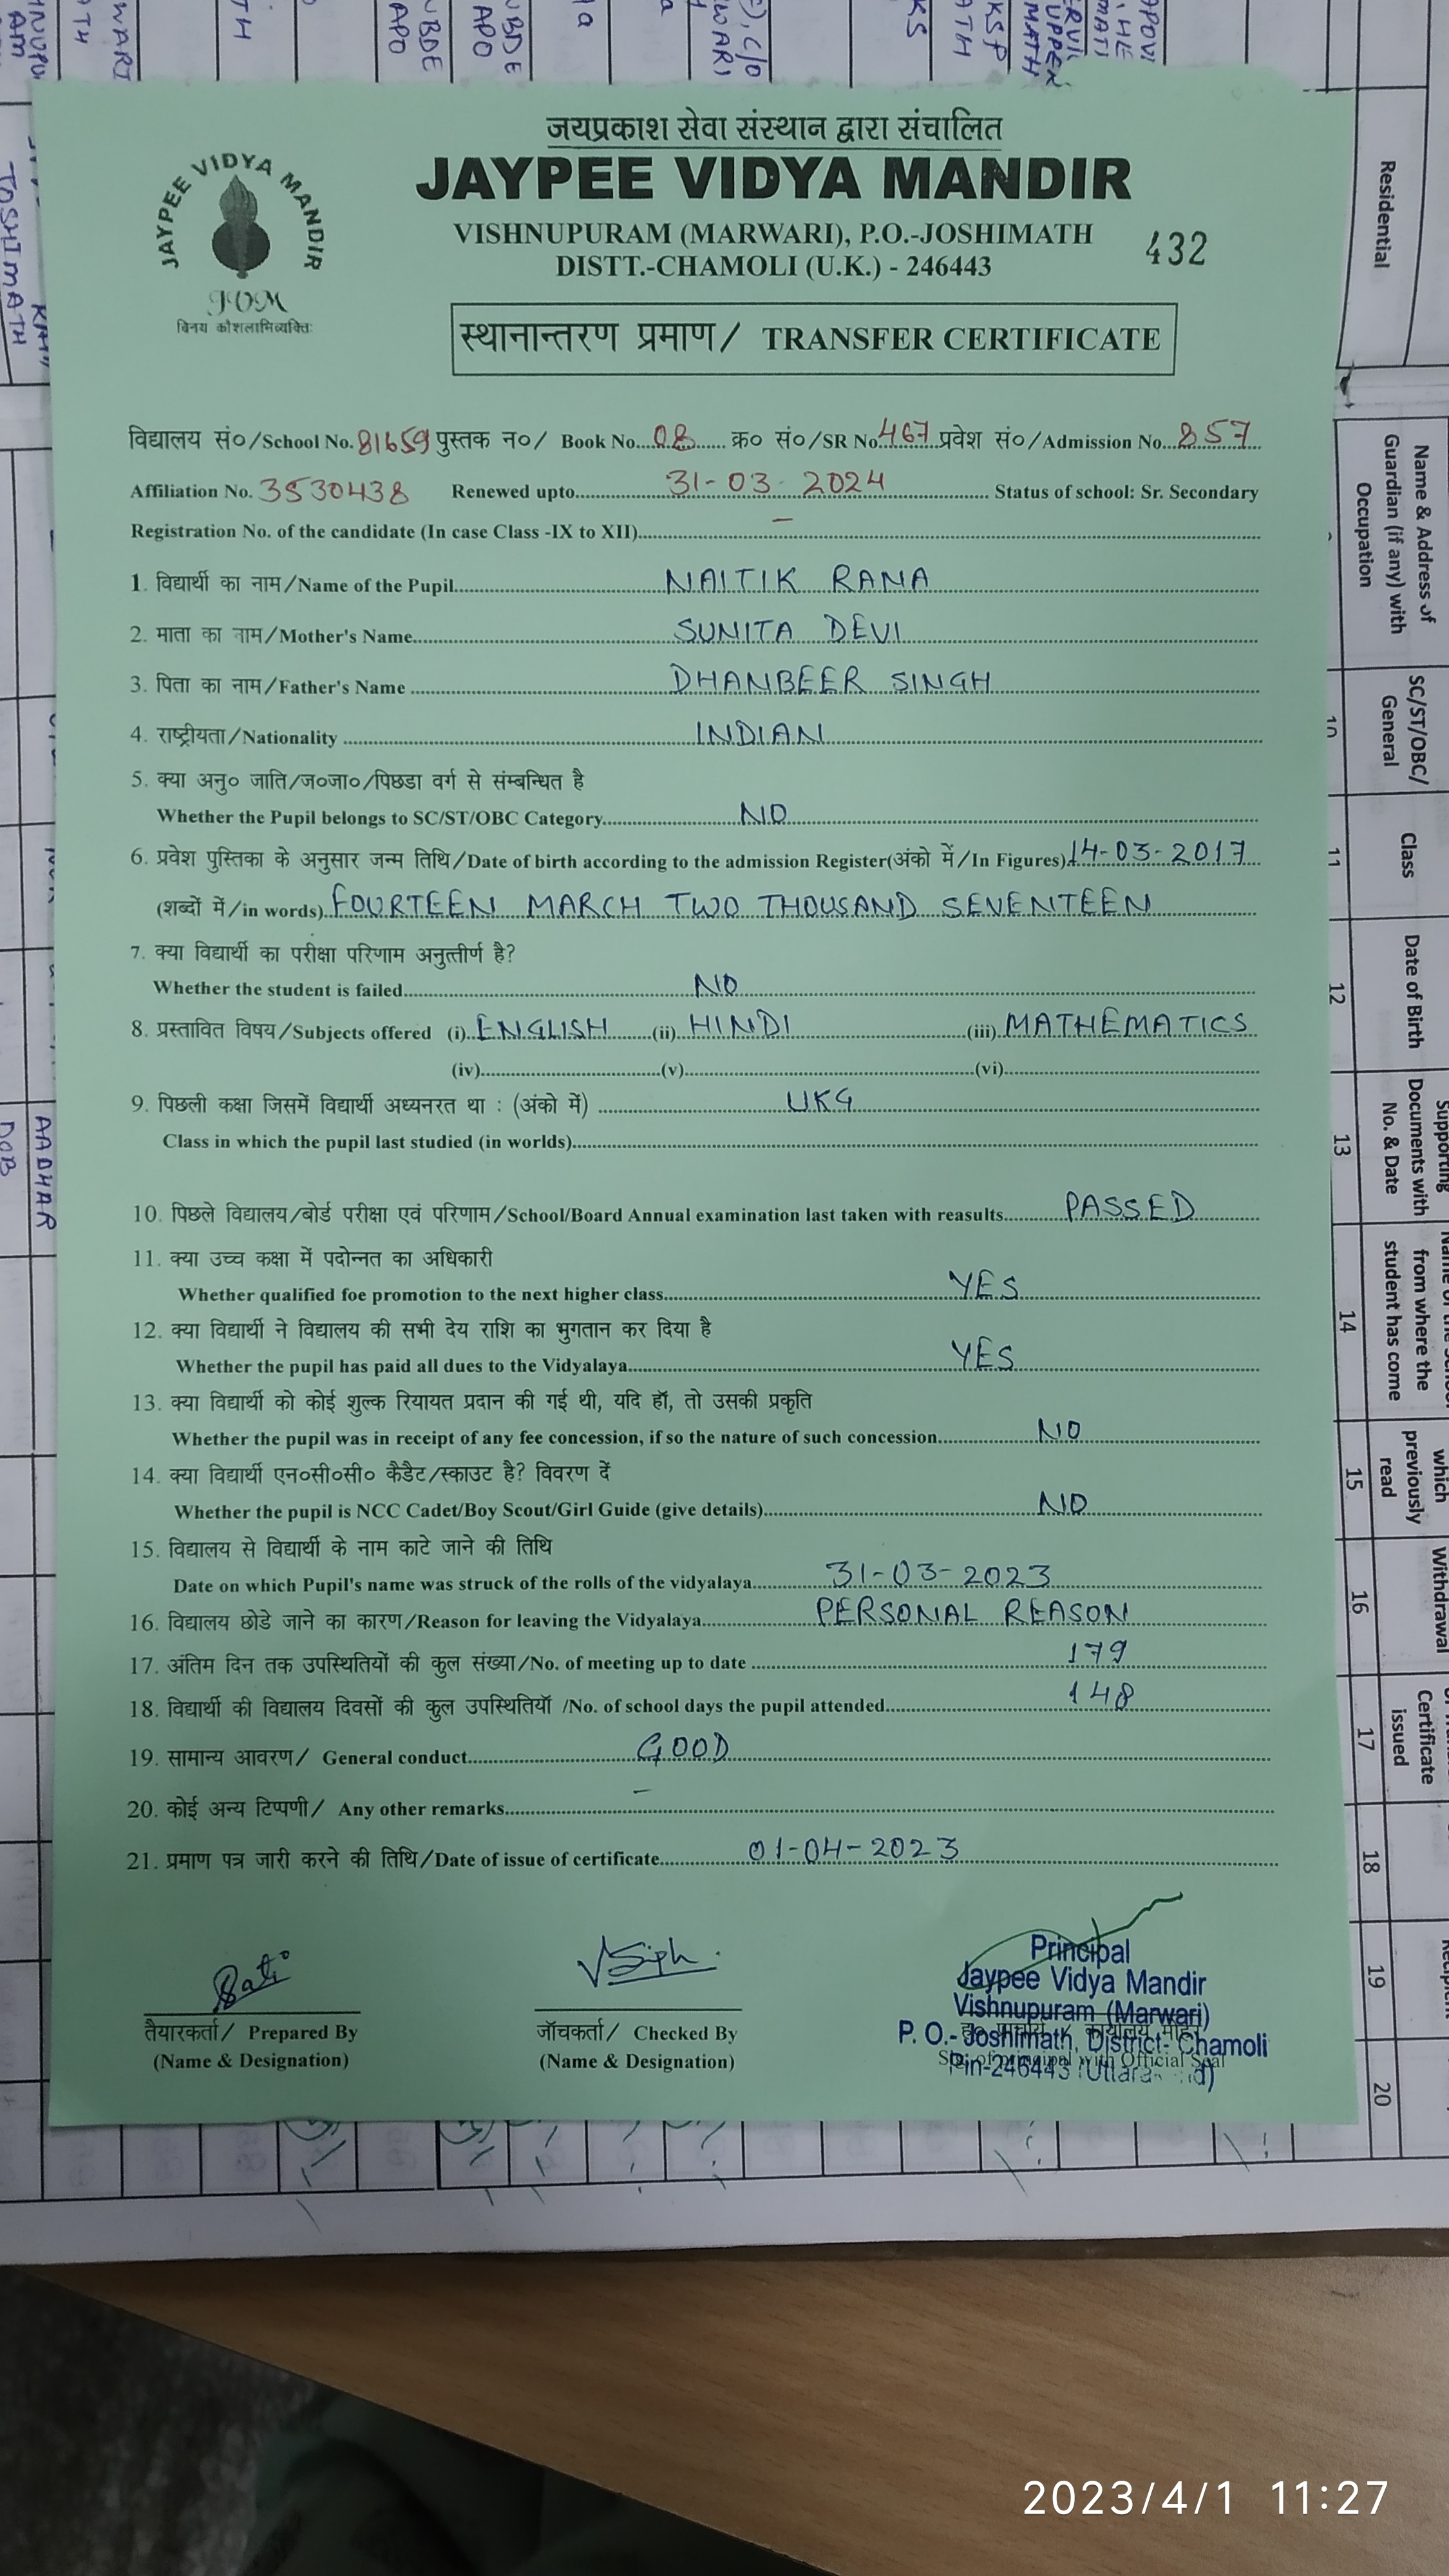 जयप्रकाश सेवा संस्थान द्वारा संचालित
JAYPEE VIDYA MANDIR
JAYPEE VIDYA MANDIR
VISHNUPURAM (MARWARI), P.O.-JOSHIMATH
432
DISTT.-CHAMOLI (U.K.) - 246443
विनय कौशलाभिव्यक्तिः
स्थानान्तरण प्रमाण/ TRANSFER CERTIFICATE
विद्यालय सं०/School No. 81659 पुस्तक न०/ Book No. 08 क्र० सं०/SR No. 467 प्रवेश सं०/Admission No. 857
Affiliation No. 3530438 Renewed upto 31-03-2024 Status of school: Sr. Secondary
Registration No. of the candidate (In case Class -IX to XII) –
1. विद्यार्थी का नाम/Name of the Pupil NAITIK RANA
2. माता का नाम/Mother's Name SUNITA DEVI
3. पिता का नाम/Father's Name DHANBEER SINGH
4. राष्ट्रीयता/Nationality INDIAN
5. क्या अनु० जाति/ज०जा०/पिछडा वर्ग से संम्बन्धित है
Whether the Pupil belongs to SC/ST/OBC Category NO
6. प्रवेश पुस्तिका के अनुसार जन्म तिथि/Date of birth according to the admission Register(अंको में/In Figures) 14-03-2017
(शब्दों में/in words) FOURTEEN MARCH TWO THOUSAND SEVENTEEN
7. क्या विद्यार्थी का परीक्षा परिणाम अनुत्तीर्ण है?
Whether the student is failed NO
8. प्रस्तावित विषय/Subjects offered (i) ENGLISH (ii) HINDI (iii) MATHEMATICS
(iv) (v) (vi)
9. पिछली कक्षा जिसमें विद्यार्थी अध्यनरत था : (अंको में) UKG
Class in which the pupil last studied (in worlds)
10. पिछले विद्यालय/बोर्ड परीक्षा एवं परिणाम/School/Board Annual examination last taken with reasults PASSED
11. क्या उच्च कक्षा में पदोन्नत का अधिकारी
Whether qualified foe promotion to the next higher class YES
12. क्या विद्यार्थी ने विद्यालय की सभी देय राशि का भुगतान कर दिया है
Whether the pupil has paid all dues to the Vidyalaya YES
13. क्या विद्यार्थी को कोई शुल्क रियायत प्रदान की गई थी, यदि हॉ, तो उसकी प्रकृति
Whether the pupil was in receipt of any fee concession, if so the nature of such concession NO
14. क्या विद्यार्थी एन०सी०सी० कैडैट/स्काउट है? विवरण दें
Whether the pupil is NCC Cadet/Boy Scout/Girl Guide (give details) NO
15. विद्यालय से विद्यार्थी के नाम काटे जाने की तिथि
Date on which Pupil's name was struck of the rolls of the vidyalaya 31-03-2023
16. विद्यालय छोडे जाने का कारण/Reason for leaving the Vidyalaya PERSONAL REASON
17. अंतिम दिन तक उपस्थितियों की कुल संख्या/No. of meeting up to date 179
18. विद्यार्थी की विद्यालय दिवसों की कुल उपस्थितियॉ /No. of school days the pupil attended 148
19. सामान्य आवरण/ General conduct GOOD
20. कोई अन्य टिप्पणी/ Any other remarks –
21. प्रमाण पत्र जारी करने की तिथि/Date of issue of certificate 01-04-2023
तैयारकर्ता/ Prepared By
(Name & Designation)
जॉचकर्ता/ Checked By
(Name & Designation)
Principal
Jaypee Vidya Mandir
Vishnupuram (Marwari)
P. O.- Joshimath, District- Chamoli
Pin-246443
Residential
Name & Address of
Guardian (if any) with
Occupation
SC/ST/OBC/
General
Class
Date of Birth
Supporting
Documents with
No. & Date
from where the
student has come
which
previously
read
Withdrawal
Certificate
issued
11
12
13
14
15
16
17
18
19
20
JOSHIMATH
AADHAR
DOB
2023/4/1 11:27